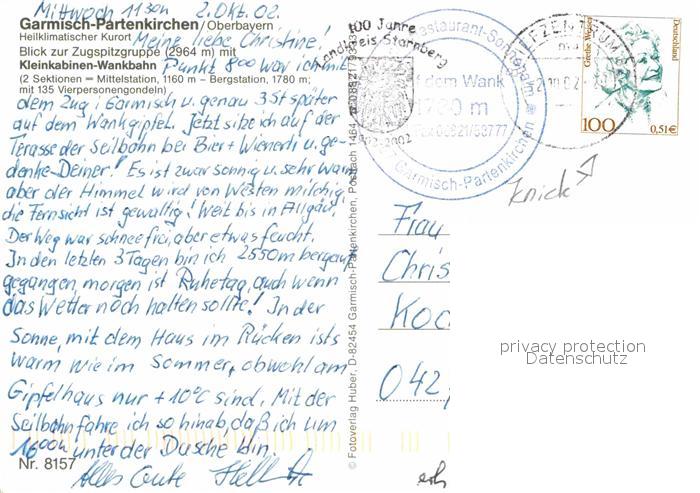 Mittwoch 11 30h 2. Okt. 02.
Garmisch-Partenkirchen / Oberbayern
Heilklimatischer Kurort
Meine liebe Christine!
Blick zur Zugspitzgruppe (2964 m) mit
Kleinkabinen-Wankbahn
Punkt 8 00 war ich mit
(2 Sektionen = Mittelstation, 1160 m – Bergstation, 1780 m;
mit 135 Vierpersonengondeln)
dem Zug i Garmisch u. genau 3 St später
auf dem Wankgipfel. Jetzt sitze ich auf der
Terasse der Seilbahn bei Bier + Wienerli u. ge-
denke Deiner! Es ist zwar sonnig u. sehr warm
aber der Himmel wird von Westen milchig,
die Fernsicht ist gewaltig! Weit bis in Allgäu.
Der Weg war schneefrei, aber etwas feucht.
In den letzten 3 Tagen bin ich 2550m bergauf
gegangen, morgen ist Ruhetag, auch wenn
das Wetter noch halten sollte! In der
Sonne, mit dem Haus im Rücken ists
warm wie im Sommer, obwohl am
Gipfelhaus nur +10°C sind. Mit der
Seilbahn fahre ich so hinab, daß ich um
16 00h unter der Dusche bin.
Nr. 8157
Alles Gute
© Fotoverlag Huber, D-82454 Garmisch-Partenkirchen, Postfach 1464
100 Jahre
Landkreis Starnberg
1902-2002
Restaurant-Sonnenalm
dem Wank
1780 m
08821/53777
Garmisch-Partenkirchen
BRIEFZENTRUM
Grethe Weiser
Deutschland
100
0,51 €
Knick
Frau
Chris
Koc
042
privacy protection
Datenschutz